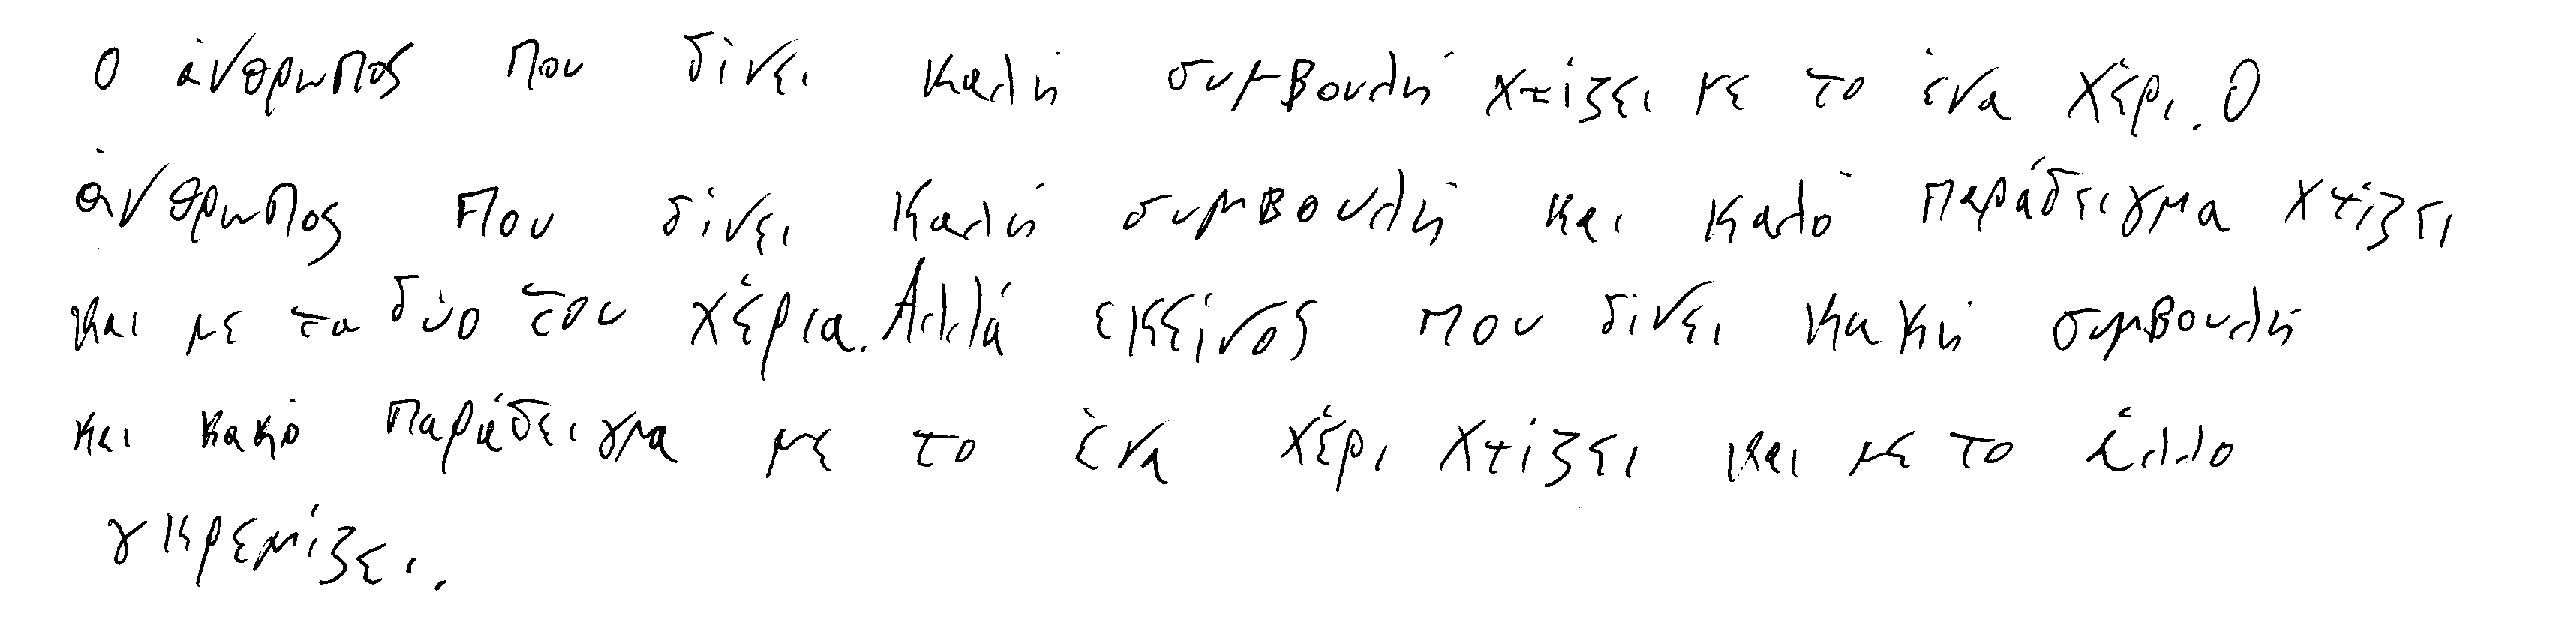 Ο άνθρωπος που δίνει καλή συμβουλή χτίζει με το ένα χέρι. Ο
άνθρωπος που δίνει καλή συμβουλή και καλό παράδειγμα χτίζει
και με τα δύο του χέρια. Αλλά εκείνος που δίνει κακή συμβουλή
και κακό παράδειγμα με το ένα χέρι χτίζει και με το άλλο
γκρεμίζει.